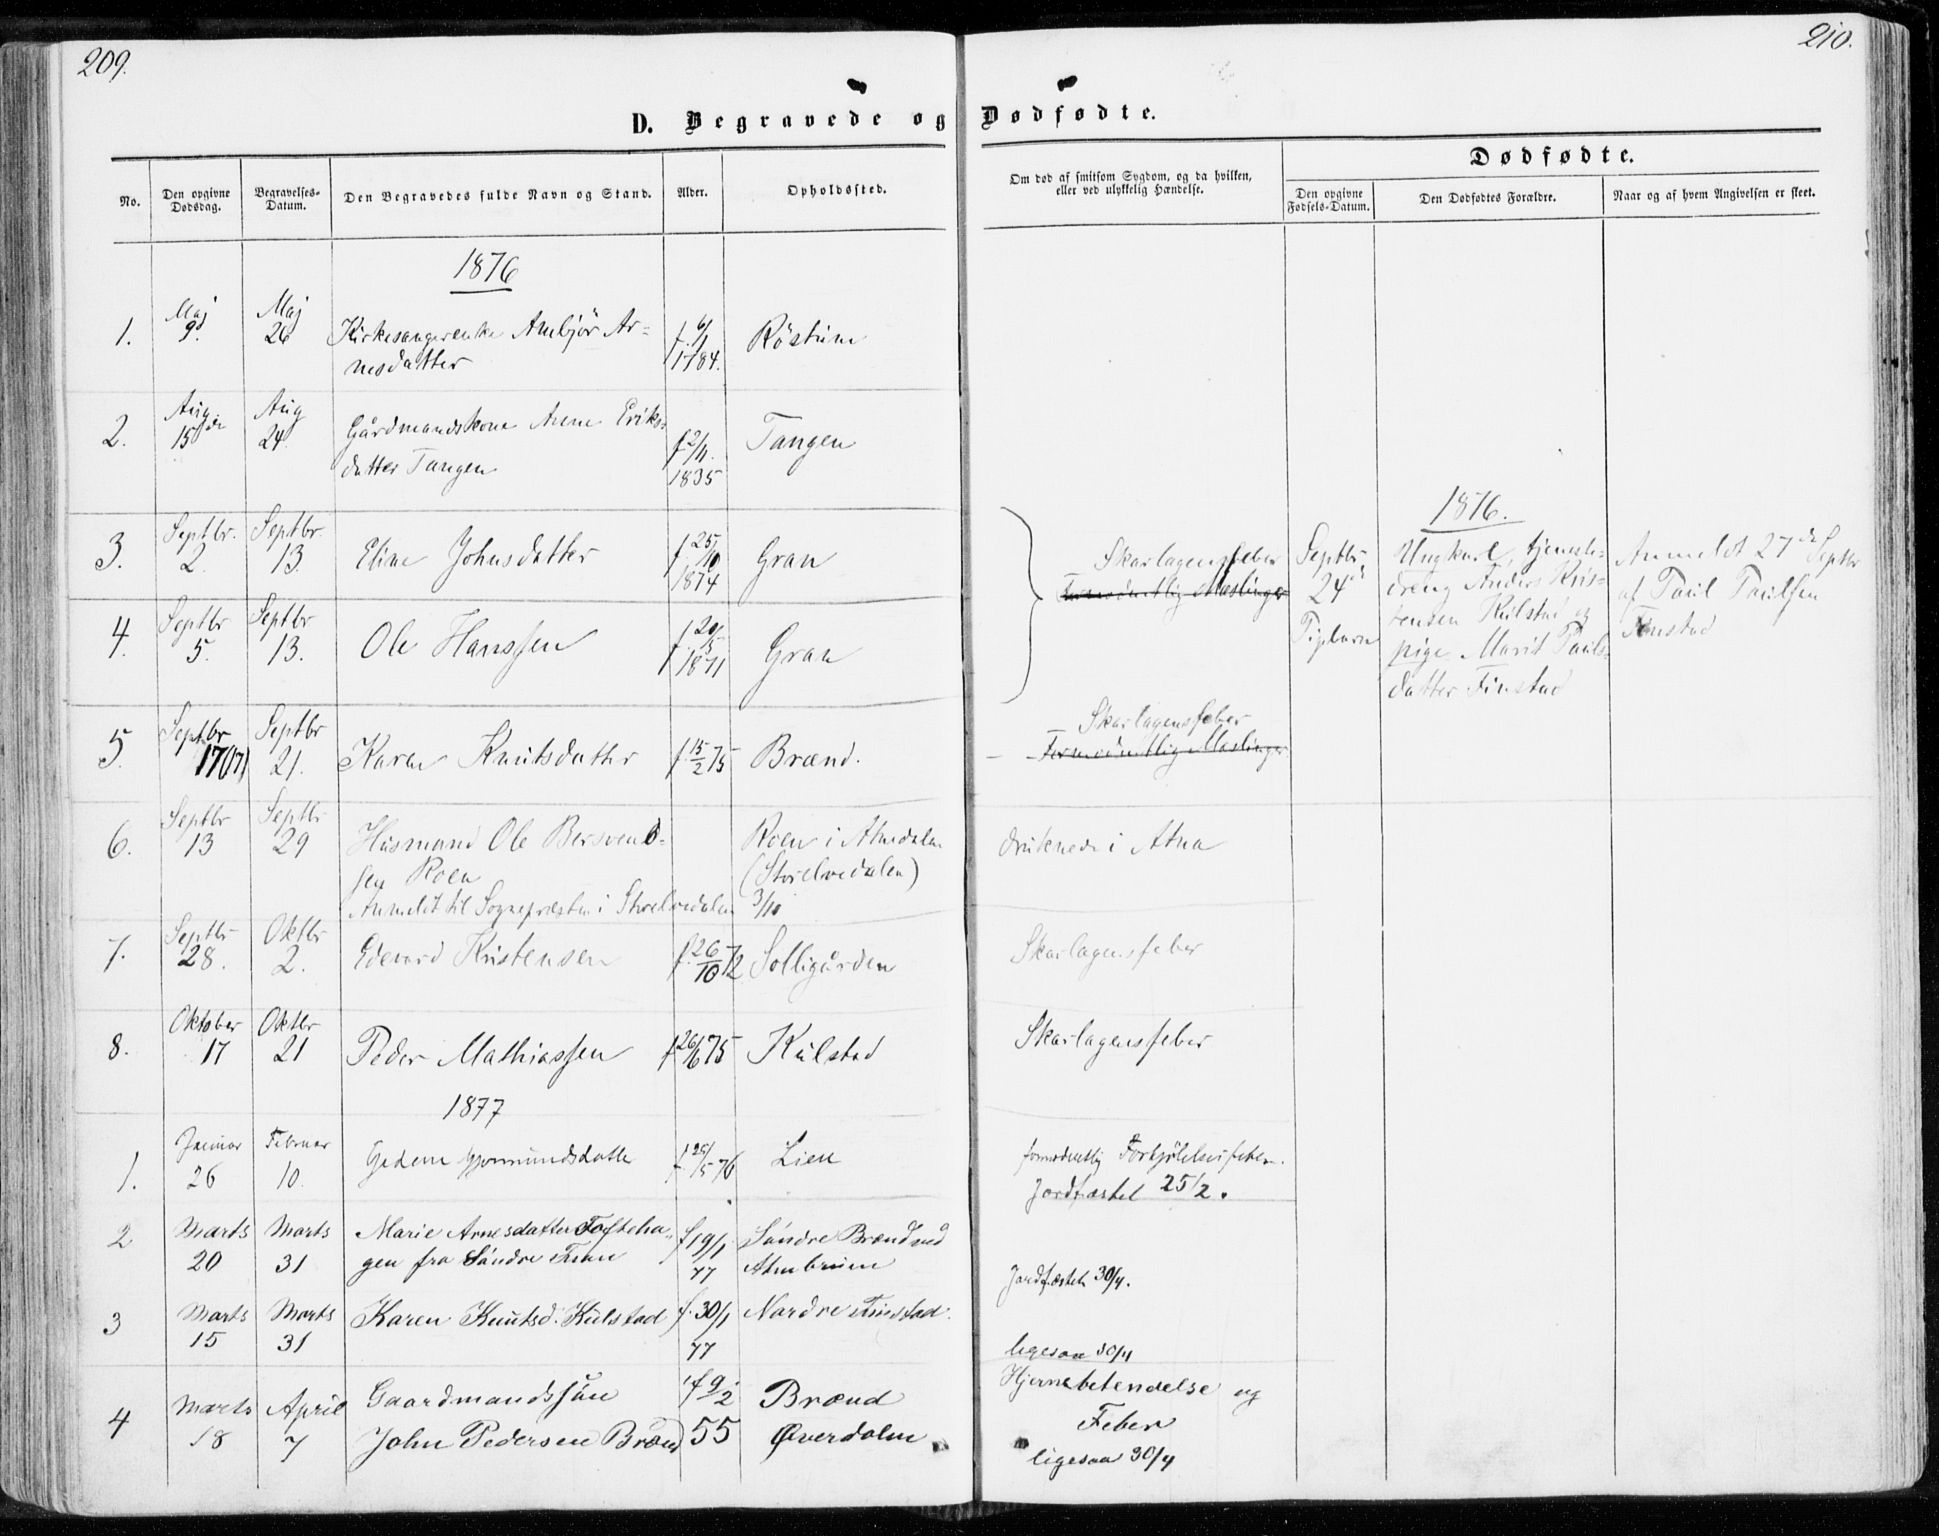 209.
210.
D. Begravede og Dødfødte.
No.
Den opgivne Dødsdag.
Begravelses-Datum.
Den Begravedes fulde Navn og Stand.
Alder.
Opholdssted.
Om død af smitsom Sygdom, og da hvilken,
eller ved ulykkelig Hændelse.
Dødfødte.
Den opgivne Fødsels-Datum.
Den Dødfødtes Forældre.
Naar og af hvem Angivelsen er skeet.
1876
1. Maj 9. Maj 26 Kirkesangerenke Ambjör Ar=
nesdatter f. 6/1 1784. Röstum
2. Aug 15de Aug 24. Gårdmandskone Anne Eriks=
datter Tangen f 2/11. 1835 Tangen
3. Septbr. 2. Septbr. 13. Eline Johnsdatter f. 25/10 1874 Gran
Skarlagensfeber
Formodentlig Mæslinger
4. Septbr 5. Septbr 13. Ole Hanssen f. 20/5 1871 Gran
1876.
Septbr 24de Pigebarn
Ungkarl, tjeneste=
dreng Anders Kris=
tensen Kulstad og
pige Marit Pauls=
datter Finstad
Anmeldt 27de Septbr
af Paul Paulsen
Finstad
5. Septbr 17(17) Septbr 21. Karen Knutsdatter f. 15/2 75 Brænd.
Skarlagensfeber
Formodentlig Mæslinger
6. Septbr 13 Septbr 29 Husmand Ole Bersvend=
sen Roen Roen i Atnedalen
(Storelvedalen)
Anmeldt til Sognepræsten i Storelvedalen 3/10
druknede i Atna
7. Septbr 28. Oktbr 2. Edevard Kristensen f. 26/10 72 Solligården
Skarlagensfeber
8. Oktober 17 Oktbr 21 Peder Mathiassen f 26/6 75 Kulstad
Skarlagensfeber
1877
1. Januar 26 Februar 10. Gjermundsdatter Lien
formodentlig Forkjölelsesfeber.
Jordfæstet 25/2.
2 Marts 20 Marts 31 Marie Arnesdatter Fosteha=
gen fra Söndre f 19/1 77 Söndre Brænd ved
Atnbruen
Jordfæstet 30/4.
3 Marts 15 Marts 31 Karen Knutsd. Kulstad f. 30/1 77 Nordre Finstad.
ligesaa 30/4
4 Marts 18 April 7 Gaardmandssön
John Pedersen Brænd f 9/2 55 Brænd
Øverdalen
Hjernebetændelse og
Feber
ligesaa 30/4